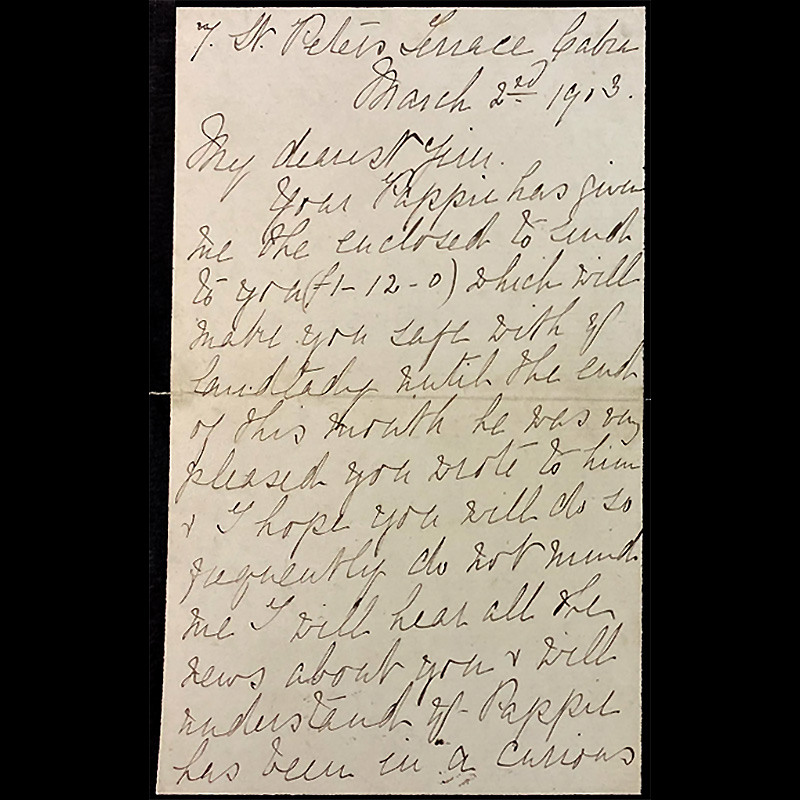 7. St. Peters Terrace Cabra
March 2nd 1903.
My dearest Jim.
Your Pappie has given
me the enclosed to send
to you (£1-12-0) which will
make you safe with yr
Landlady until the end
of this month he was very
pleased you wrote to him
& I hope you will do so
frequently do not mind
me I will hear all the
news about you & will
understand yr Pappie
has been in a curious